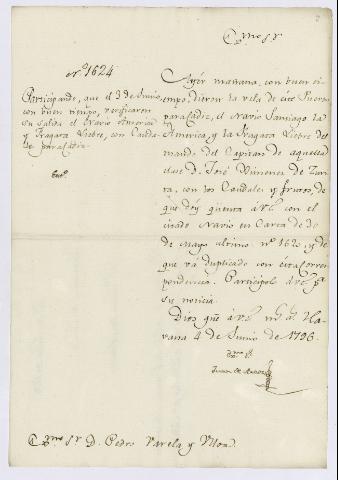 Exmo Sr
No 1624
Participando, que el 3 de Junio,
con buen tiempo, verificaron
su salida el Navio America
y Fragata Liebre, con Cauda-
les para Cadiz.
Exmo
Ayer mañana, con buen ti-
empo, dieron la vela de este Puerto
para Cadiz, el Navio Santiago la
America, y la Fragata Liebre del
mando del Capitan de aquella
clase D. José Ximenez de
con los Caudales y frutos, de
que doy quenta á V.E. con el
citado Navio en Carta de 30
de Mayo ultimo No 1620, y de
que va duplicado con esta Corres-
pondencia. Participolo á V.E. pa
su noticia.
Dios gue á V.E. ms as Ha-
vana 4 de Junio de 1796.
Exmo Sr
Juan de Araoz
Exmo Sr D. Pedro Varela y Ulloa.